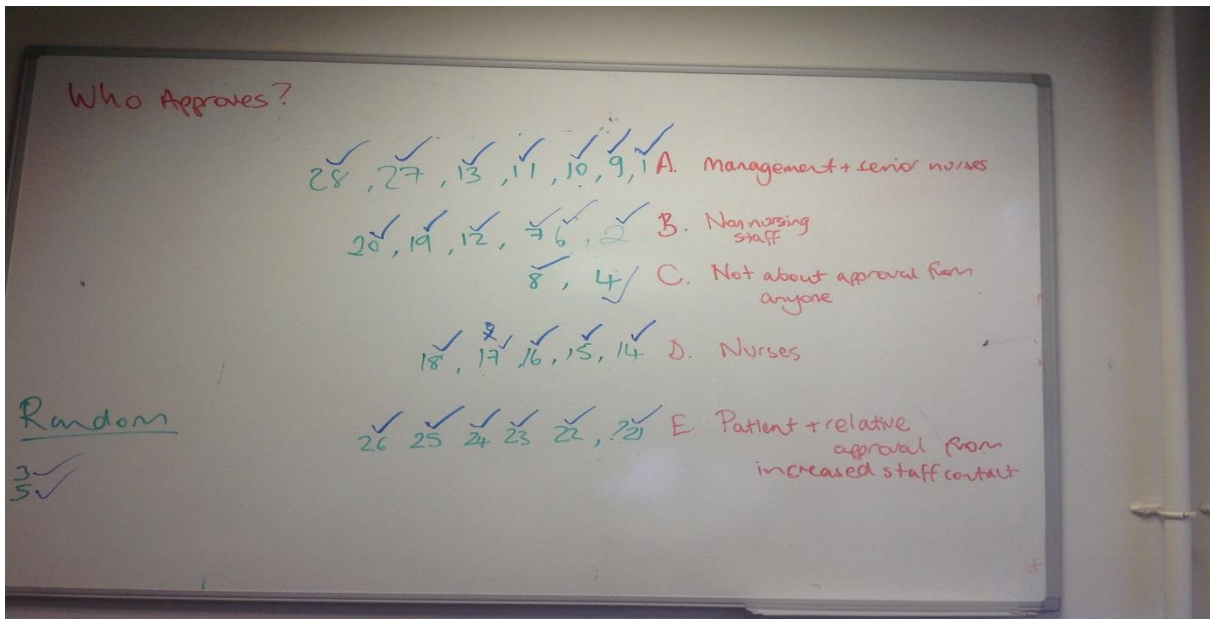 Who Approves?
28, 27, 13, 11, 10, 9, 1 A. Management + senior nurses
20, 19, 12, 7 6, 2 B. Non nursing
staff
8, 4 C. Not about approval from
anyone
18, 17, 16, 15, 14 D. Nurses
26 25 24 23 22, ?21 E. Patient + relative
approval from
increased staff contact
Random
3
5